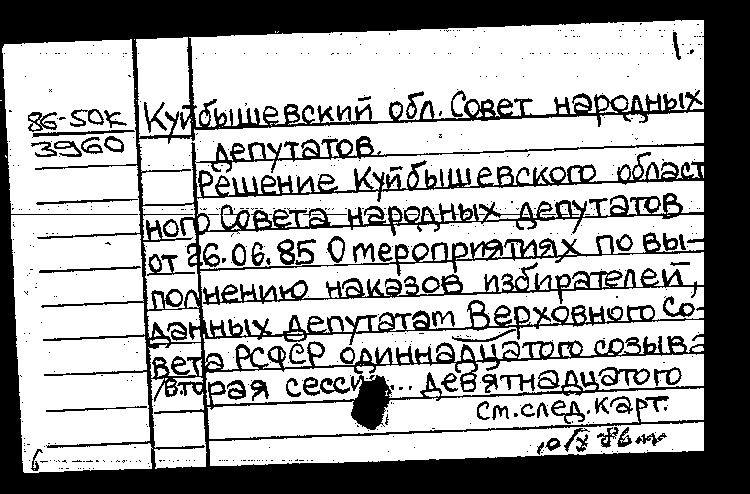 1.
86-50к
3960
Куйбышевский обл. Совет народных
депутатов.
Решение Куйбышевского област
ного Совета народных депутатов
от 26.06.85 О мероприятиях по вы-
полнению наказов избирателей,
данных депутатам Верховного Со-
вета РСФСР одиннадцатого созыва
/вторая сессия... девятнадцатого
см. след. карт.